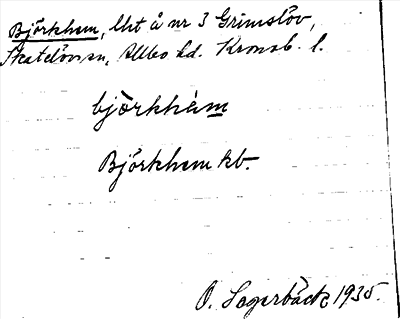 Björkhem, lht å nr 3 Grimslöv,
Skatelövs sn, Allbo hd. Kronob. l.
bjö̀rkhèm
Björkhem kb.
O. Sagerbäck 1935.